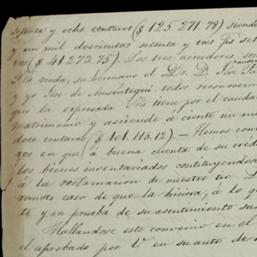 setenta y ocho centavos ($ 125.271.78) siendo
y un mil doscientos setenta y tres ps set
vos ($ 41273.75). Los tres acreedores son
la viuda, su hermano el Dr. D. José
y yo José de Ansuátegui: todos reconocem
que la expresada Sra tiene por el caudal
matrimonio y asciende á ciento un mi
doce centavos ($ 101.115.12).— Hemos conv
gos en que á buena cuenta de su créd
los bienes inventariados constituyéndose
á la reclamacion de nuestro tio D
ranato caso de que la hiciera, á lo qu
te y en prueba de su asentimiento sus
Hallándose este convenio en el
el aprobado por U en su auto de